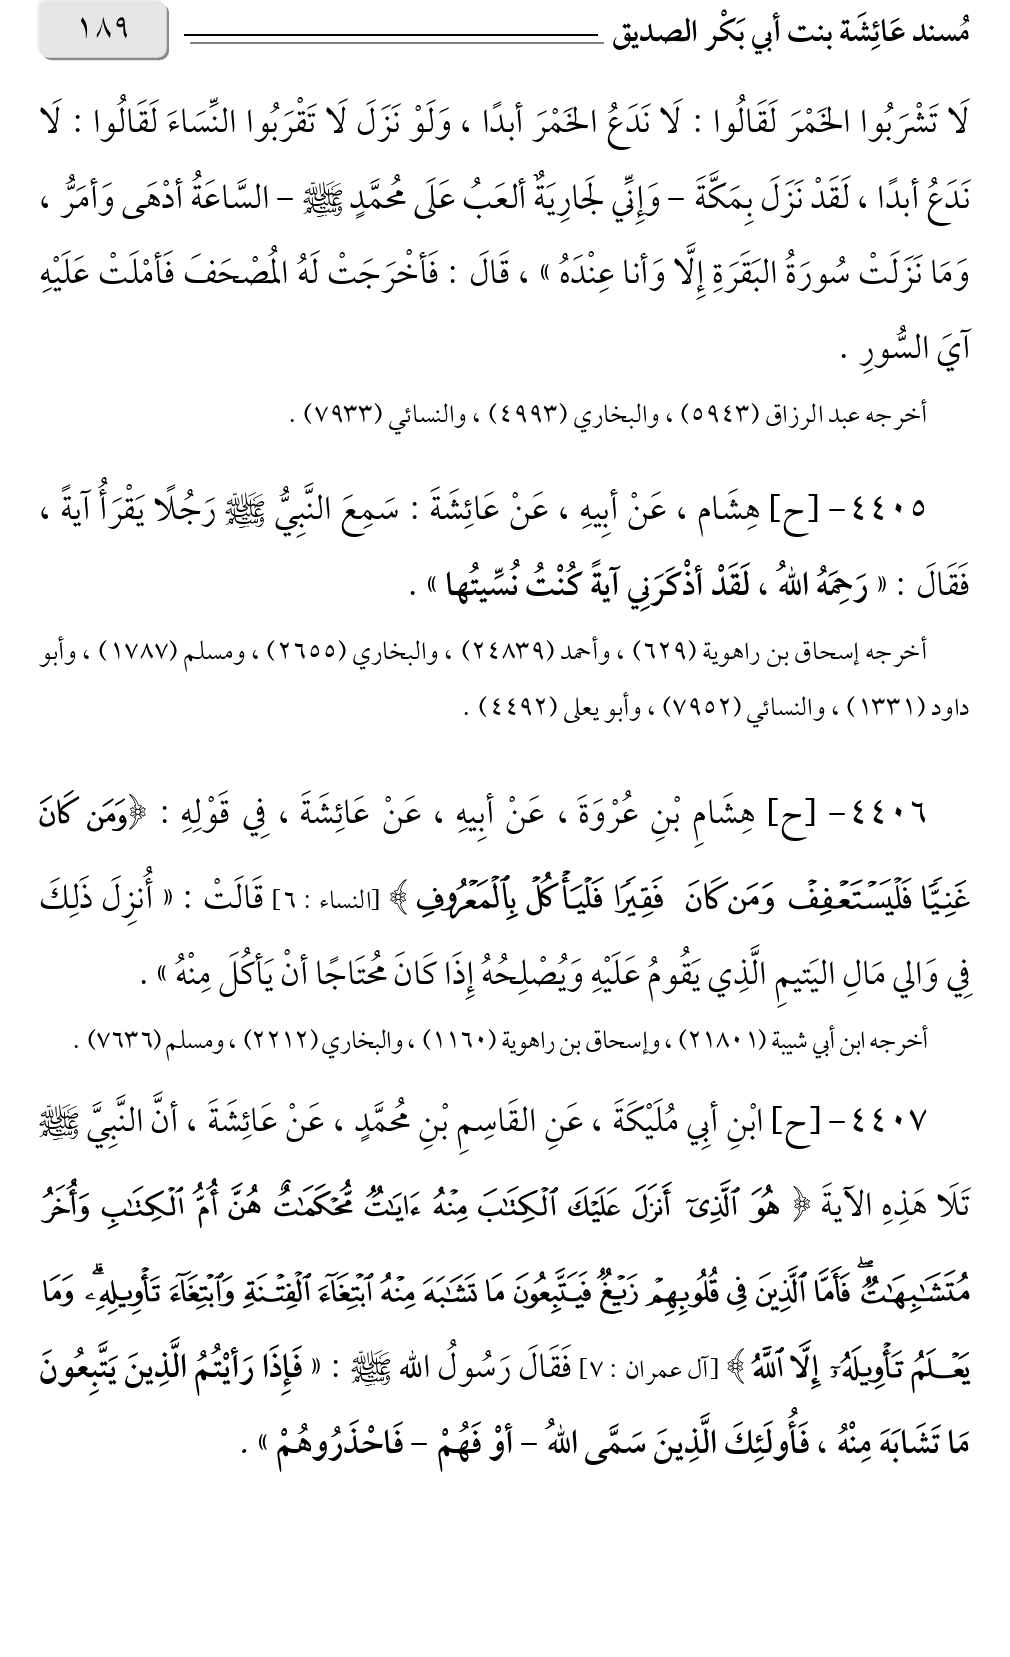 مُسند عَائِشَة بنت أبي بَكْر الصديق ١٨٩
لَا تَشْرَبُوا الخَمْرَ لَقَالُوا : لَا نَدَعُ الخَمْرَ أبدًا ، وَلَوْ نَزَلَ لَا تَقْرَبُوا النِّسَاءَ لَقَالُوا : لَا
نَدَعُ أبدًا ، لَقَدْ نَزَلَ بِمَكَّةَ – وَإِنِّي لَجَارِيَةٌ ألعَبُ عَلَى مُحمَّدٍ ﷺ – السَّاعَةُ أدْهَى وَأمَرُّ ،
وَمَا نَزَلَتْ سُورَةُ البَقَرَةِ إِلَّا وَأنا عِنْدَهُ » ، قَالَ : فَأخْرَجَتْ لَهُ المُصْحَفَ فَأمْلَتْ عَلَيْهِ
آيَ السُّورِ .
أخرجه عبد الرزاق (٥٩٤٣) ، والبخاري (٤٩٩٣) ، والنسائي (٧٩٣٣) .
٤٤٠٥- [ح] هِشَام ، عَنْ أبِيهِ ، عَنْ عَائِشَةَ : سَمِعَ النَّبِيُّ ﷺ رَجُلًا يَقْرَأُ آيةً ،
فَقَالَ : « رَحِمَهُ اللهُ ، لَقَدْ أذْكَرَنِي آيةً كُنْتُ نُسِّيتُها » .
أخرجه إسحاق بن راهوية (٦٢٩) ، وأحمد (٢٤٨٣٩) ، والبخاري (٢٦٥٥) ، ومسلم (١٧٨٧) ، وأبو
داود (١٣٣١) ، والنسائي (٧٩٥٢) ، وأبو يعلى (٤٤٩٢) .
٤٤٠٦- [ح] هِشَامِ بْنِ عُرْوَةَ ، عَنْ أبِيهِ ، عَنْ عَائِشَةَ ، فِي قَوْلِهِ : ﴿وَمَن كَانَ
غَنِيًّا فَلْيَسْتَعْفِفْ وَمَن كَانَ فَقِيرًا فَلْيَأْكُلْ بِٱلْمَعْرُوفِ ﴾ [النساء : ٦] قَالَتْ : « أُنزِلَ ذَلِكَ
فِي وَالي مَالِ اليَتيمِ الَّذِي يَقُومُ عَلَيْهِ وَيُصْلِحُهُ إِذَا كَانَ مُحتَاجًا أنْ يَأكُلَ مِنْهُ » .
أخرجه ابن أبي شيبة (٢١٨٠١) ، وإسحاق بن راهوية (١١٦٠) ، والبخاري(٢٢١٢) ، ومسلم(٧٦٣٦) .
٤٤٠٧- [ح] ابْنِ أبِي مُلَيْكَةَ ، عَنِ القَاسِمِ بْنِ مُحمَّدٍ ، عَنْ عَائِشَةَ ، أنَّ النَّبِيَّ ﷺ
تَلَا هَذِهِ الآيةَ ﴿ هُوَ ٱلَّذِىٓ أَنزَلَ عَلَيْكَ ٱلْكِتَٰبَ مِنْهُ ءَايَٰتٌ مُّحْكَمَٰتٌ هُنَّ أُمُّ ٱلْكِتَٰبِ وَأُخَرُ
مُتَشَٰبِهَٰتٌ ۖ فَأَمَّا ٱلَّذِينَ فِى قُلُوبِهِمْ زَيْغٌ فَيَتَّبِعُونَ مَا تَشَٰبَهَ مِنْهُ ٱبْتِغَآءَ ٱلْفِتْنَةِ وَٱبْتِغَآءَ تَأْوِيلِهِۦ ۗ وَمَا
يَعْلَمُ تَأْوِيلَهُۥٓ إِلَّا ٱللَّهُ ﴾ [آل عمران : ٧] فَقَالَ رَسُولُ الله ﷺ : « فَإِذَا رَأيْتُمُ الَّذِينَ يَتَّبِعُونَ
مَا تَشَابَهَ مِنْهُ ، فَأُولَئِكَ الَّذِينَ سَمَّى اللهُ – أوْ فَهُمْ – فَاحْذَرُوهُمْ » .